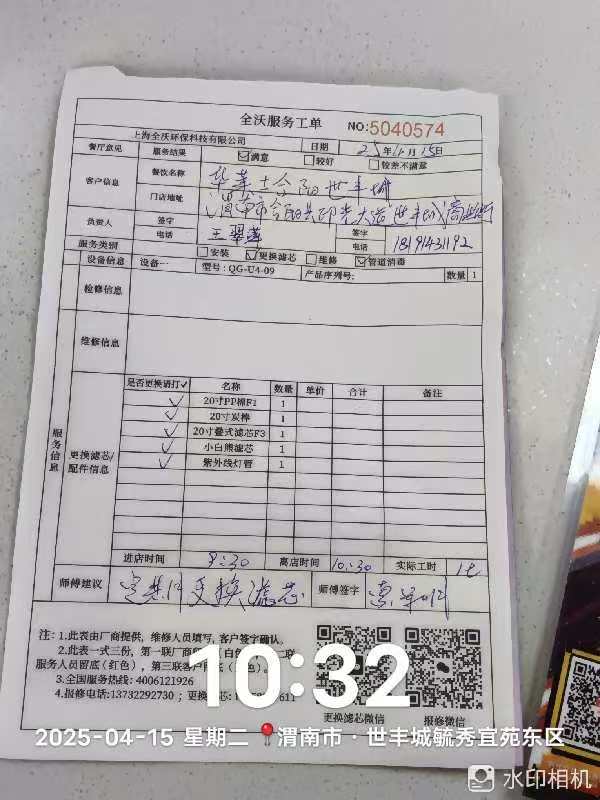 全沃服务工单 NO:5040574
上海全沃环保科技有限公司 日期 25年4月15日
餐厅意见 服务结果 满意 较好 较差不满意
客户信息 餐饮名称 华莱士合阳世丰城
门店地址 渭南市合阳县凤凰大道世丰城商业街
负责人 签字 王翠莲 签字
电话 电话 18191431192
服务类别 安装 更换滤芯 维修 管道消毒
设备信息 设备一 型号:QG-U4-09 产品序列号: 数量 1
检修信息
维修信息
服务信息
更换滤芯/配件信息
是否更换请打✓ 名称 数量 单价 合计 备注
✓ 20寸PP棉F1 1
✓ 20寸炭棒 1
✓ 20寸叠式滤芯F3 1
✓ 小白熊滤芯 1
✓ 紫外线灯管 1
进店时间 9:30 离店时间 10:30 实际工时 1h
师傅建议 定期更换滤芯 师傅签字
注:1.此表由厂商提供,维修人员填写,客户签字确认。
2.此表一式三份,第一联厂商
服务人员留底(红色),第三联客户
3.全国服务热线:4006121926
4.报修电话:13732292730;更换
更换滤芯微信 报修微信
10:32
2025-04-15 星期二 渭南市·世丰城毓秀宜苑东区
水印相机